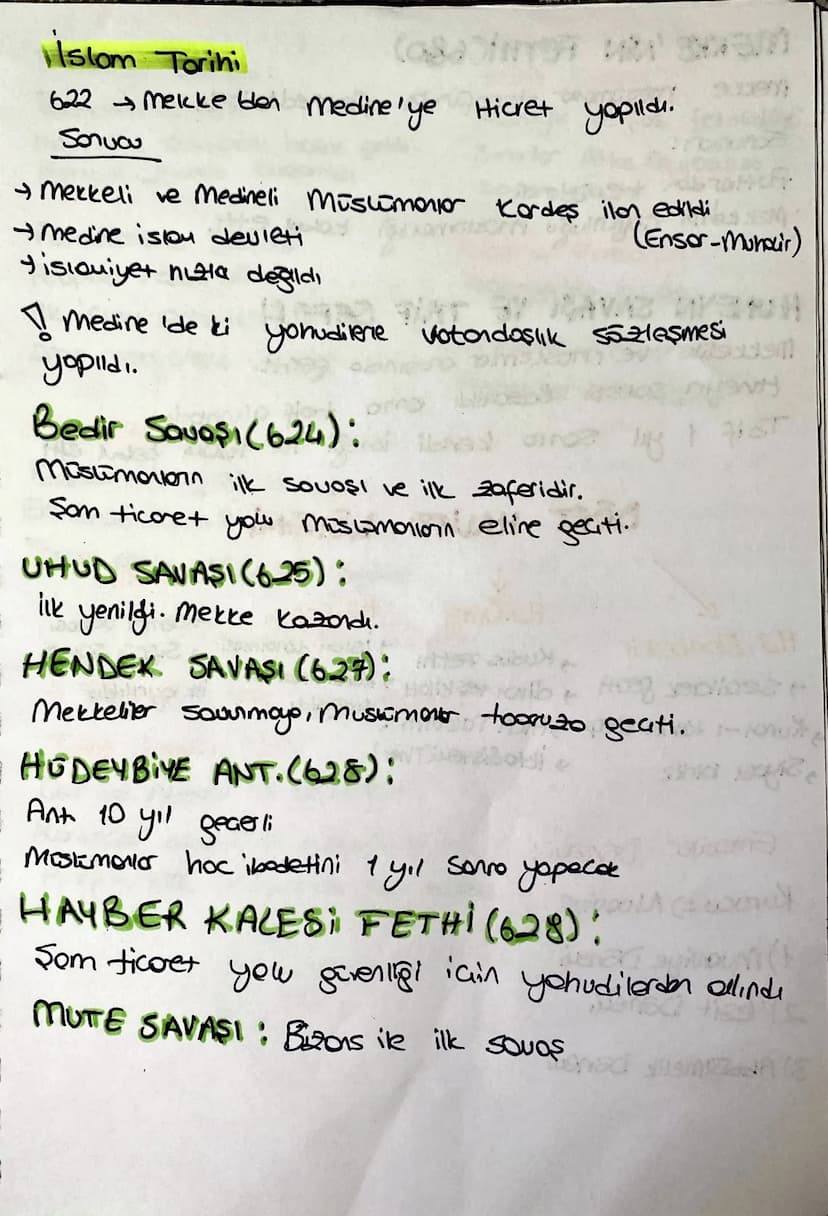 İslam Tarihi
622 → Mekke'den Medine'ye Hicret yapıldı.
Sonucu
→ Mekkeli ve Medineli Müslümanlar Kardeş ilan edildi
(Ensar-Muhacir)
→ Medine islam devleti
→ islamiyet hızla değildi
! Medine'de ki yahudilerle vatandaşlık sözleşmesi
yapıldı.
Bedir Savaşı (624):
Müslümanların ilk savaşı ve ilk zaferidir.
Şam ticaret yolu müslümanların eline geçti.
UHUD SAVAŞI (625):
ilk yenilgi. Mekke kazandı.
HENDEK SAVAŞI (627):
Mekkeliler savunmaya, Müslümanlar taaruza geçti.
HÜDEYBİYE ANT. (628):
Ant 10 yıl geçerli
Müslümanlar hac ibadetini 1 yıl sonra yapacak
HAYBER KALESİ FETHİ (628):
Şam ticaret yolu güvenliği için yahudilerden alındı
MUTE SAVAŞI: Bizans ile ilk savaş